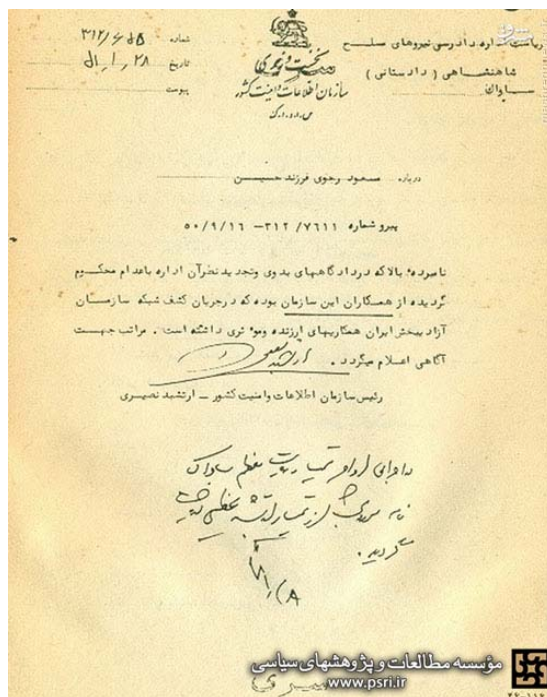 ریاست اداره دادرسی نیروهای مسلح
شاهنشاهی (دادستانی)
ساواك
نخست وزیری
سازمان اطلاعات و امنیت کشور
س.ا.و.ا.ك
شماره ۳۱۲/۶۵۵
تاریخ ۵۱/۱/۲۸
پیوست
درباره مسعود رجوی فرزند حسین
پیرو شماره ۳۱۲/۷۶۱۱ - ۵۰/۹/۱۶
نامبرده بالا که در دادگاههای بدوی و تجدید نظر آن اداره باعدام محکوم
گردیده از همکاران این سازمان بوده که در جریان کشف شبکه سازمان
آزاد یبخش ایران همکاریهای ارزنده و موثری داشته است . مراتب جهت
آگاهی اعلام میگردد .
رئیس سازمان اطلاعات و امنیت کشور ـ ارتشبد نصیری
گردید .
سری
مؤسسه مطالعات و پژوهشهای سیاسی
www.psri.ir